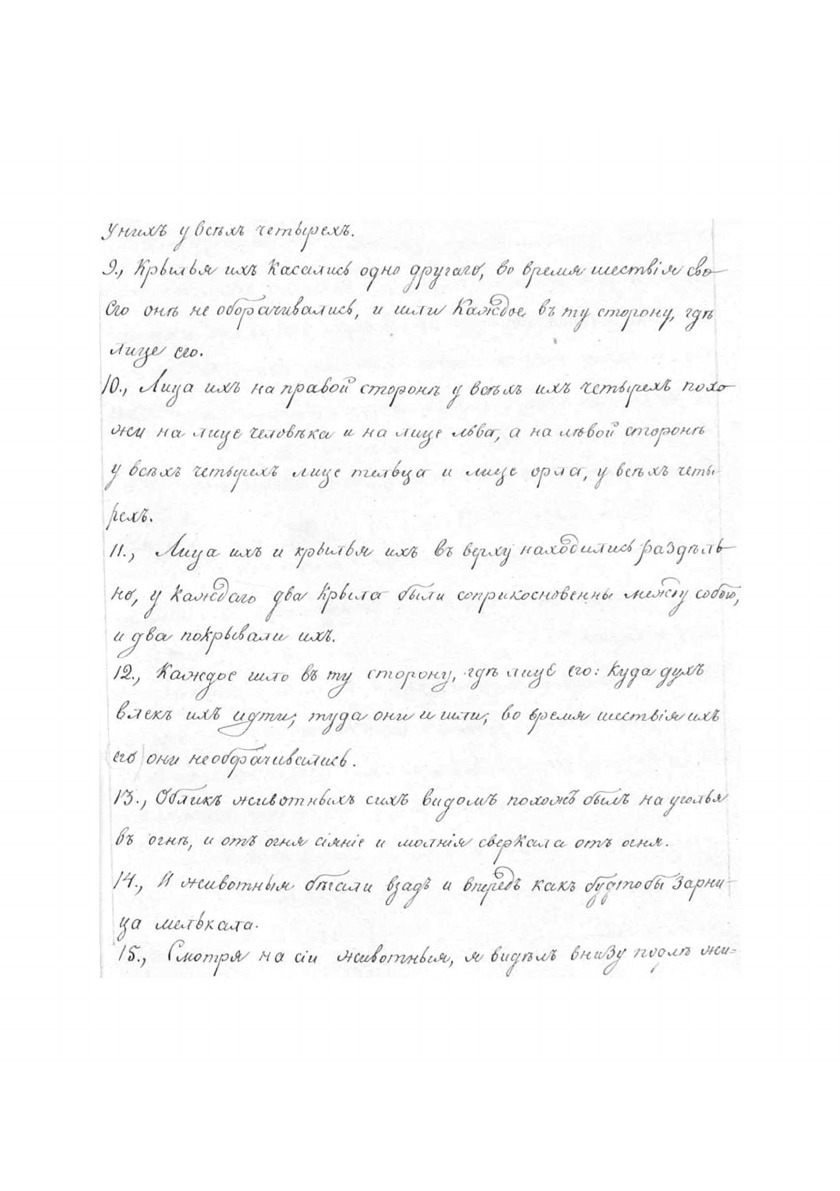 У нихъ у всѣхъ четырехъ.
9., Крылья ихъ касались одно другаго, во время шествія сво-
его онѣ не оборачивались, и шли каждое въ ту сторону, гдѣ
лице его.
10., Лица ихъ на правой сторонѣ у всѣхъ ихъ четырехъ похо-
жи на лице человѣка и на лице льва, а на лѣвой сторонѣ
у всѣхъ четырехъ лице тельца и лице орла, у всѣхъ четы-
рехъ.
11., Лица ихъ и крылья ихъ въ верху находились раздѣль-
но, у каждаго два крыла были соприкосновенны между собою,
и два покрывали ихъ.
12., Каждое шло въ ту сторону, гдѣ лице его: куда духъ
влекъ ихъ идти, туда они и шли, во время шествія ихъ
(его) они необорачивались.
13., Обликъ животныхъ сихъ видомъ похожъ былъ на уголья
въ огнѣ, и отъ огня сіяніе и молнія сверкала отъ огня.
14., И животныя бѣгали взадъ и впередъ какъ будтобы зарни-
ца мелькала.
15., Смотря на сіи животныя, я видѣлъ внизу подлѣ жи-